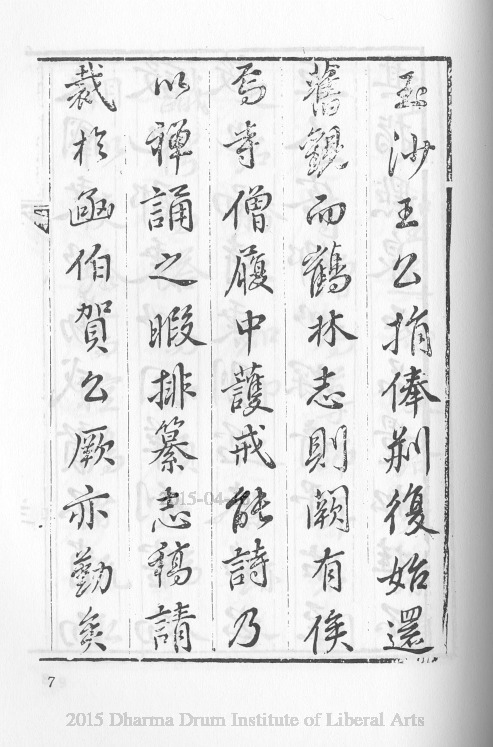 玉沙王公捐俸刱復始還
舊觀而鶴林志則闕有俟
焉寺僧履中護戒能詩乃
以禪誦之暇排纂志稿請
裁於凾伯賀公厥亦勤矣
7
2015 Dharma Drum Institute of Liberal Arts